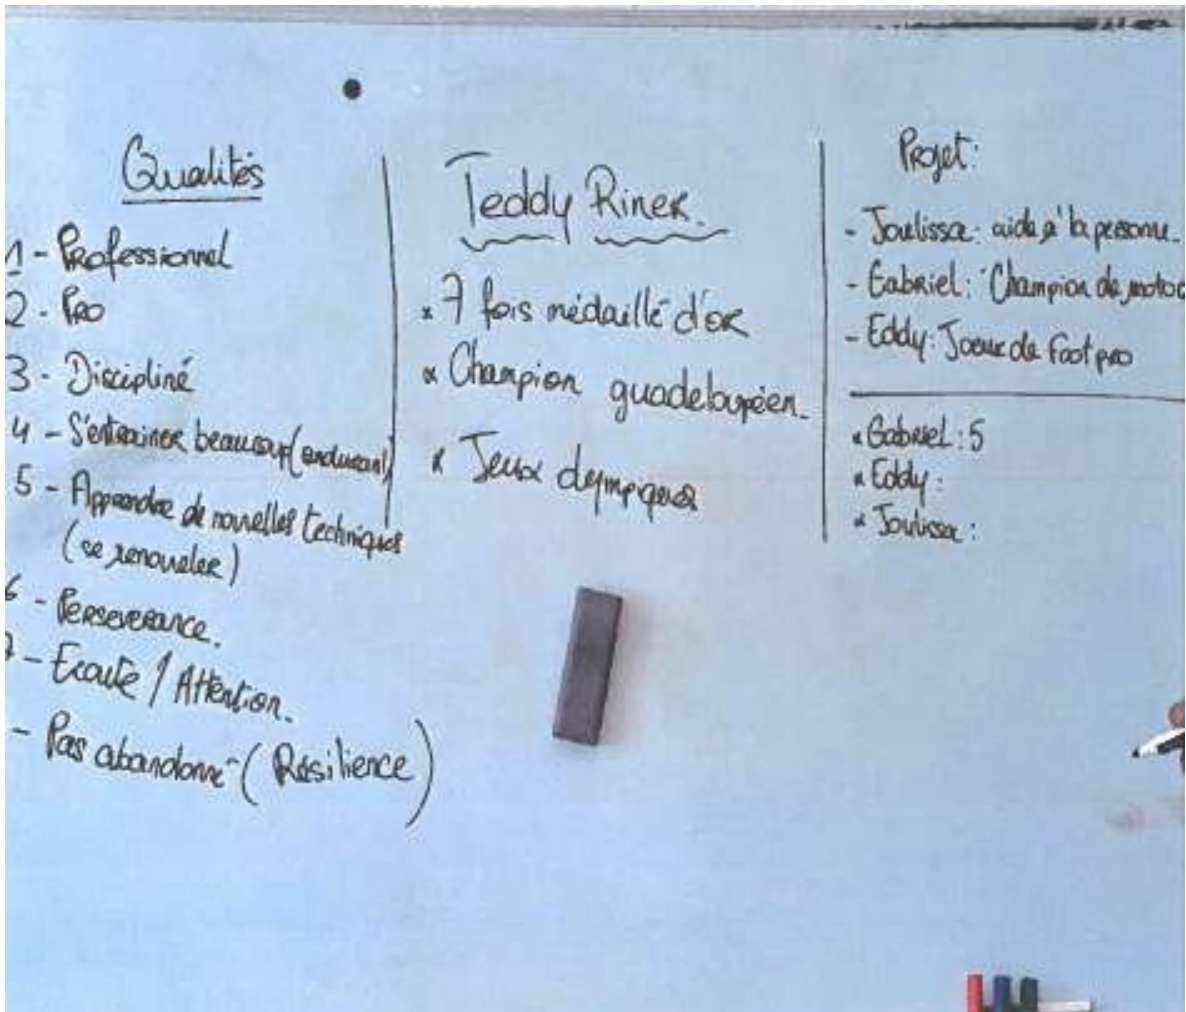 Qualités
1 - Professionnel
2 - Pro
3 - Discipliné
4 - S'entrainer beaucoup (endurant)
5 - Apprendre de nouvelles techniques
(se renouveler)
6 - Perseverance.
7 - Ecoute / Attention.
- Pas abandonné (Résilience)
Teddy Riner.
x 7 fois médaillé d'or
x Champion guadeloupéen.
x Jeux olympiques
Projet:
- Joulissa: aide à la personne.
- Gabriel: Champion de moto
- Eddy: Joueur de foot pro
x Gabriel: 5
x Eddy:
x Joulissa: